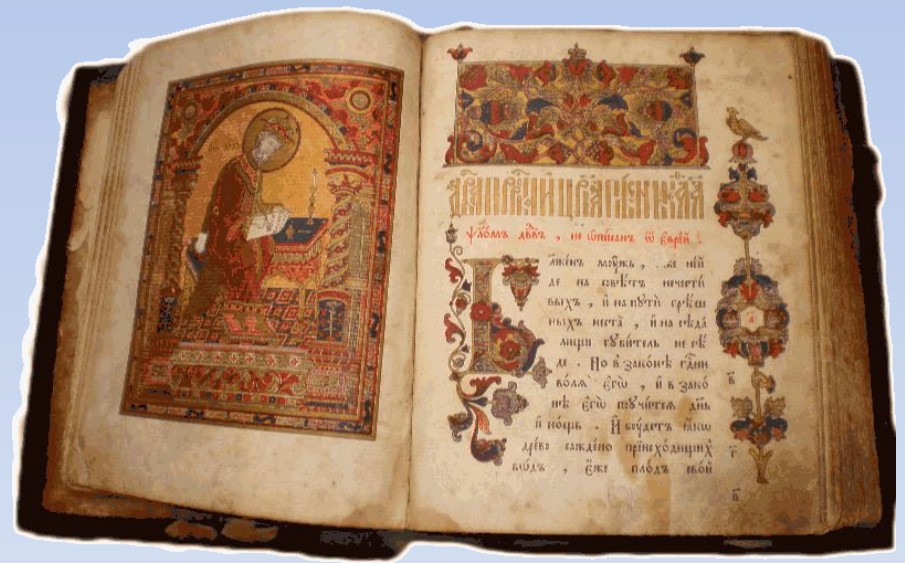 Ѱало́мъ дв҃дъ , не ѡ҆пи́санъ ѿ є҆вре́й
Блаже́нъ моу́жь ,
де на совѣ́тъ нечести́
выхъ , и҆ на пꙋти̂ грѣ́ш
ныхъ не ста̀ , и҆ на сѣда́
лищи гꙋби́тель не сѣ́
де . Но в зако́нѣ гдⷭ҇ни
во́лѧ є҆гѡ̀ , и҆ в зако́
нѣ є҆гѡ̀ поꙋчи́тсѧ дн҃ь
и҆ но́щь . И҆ бꙋ́детъ ꙗ҆́кѡ
дре́во саждено̀ при и҆схо́дищихъ
во́дъ , є҆́же пло́дъ сво́й